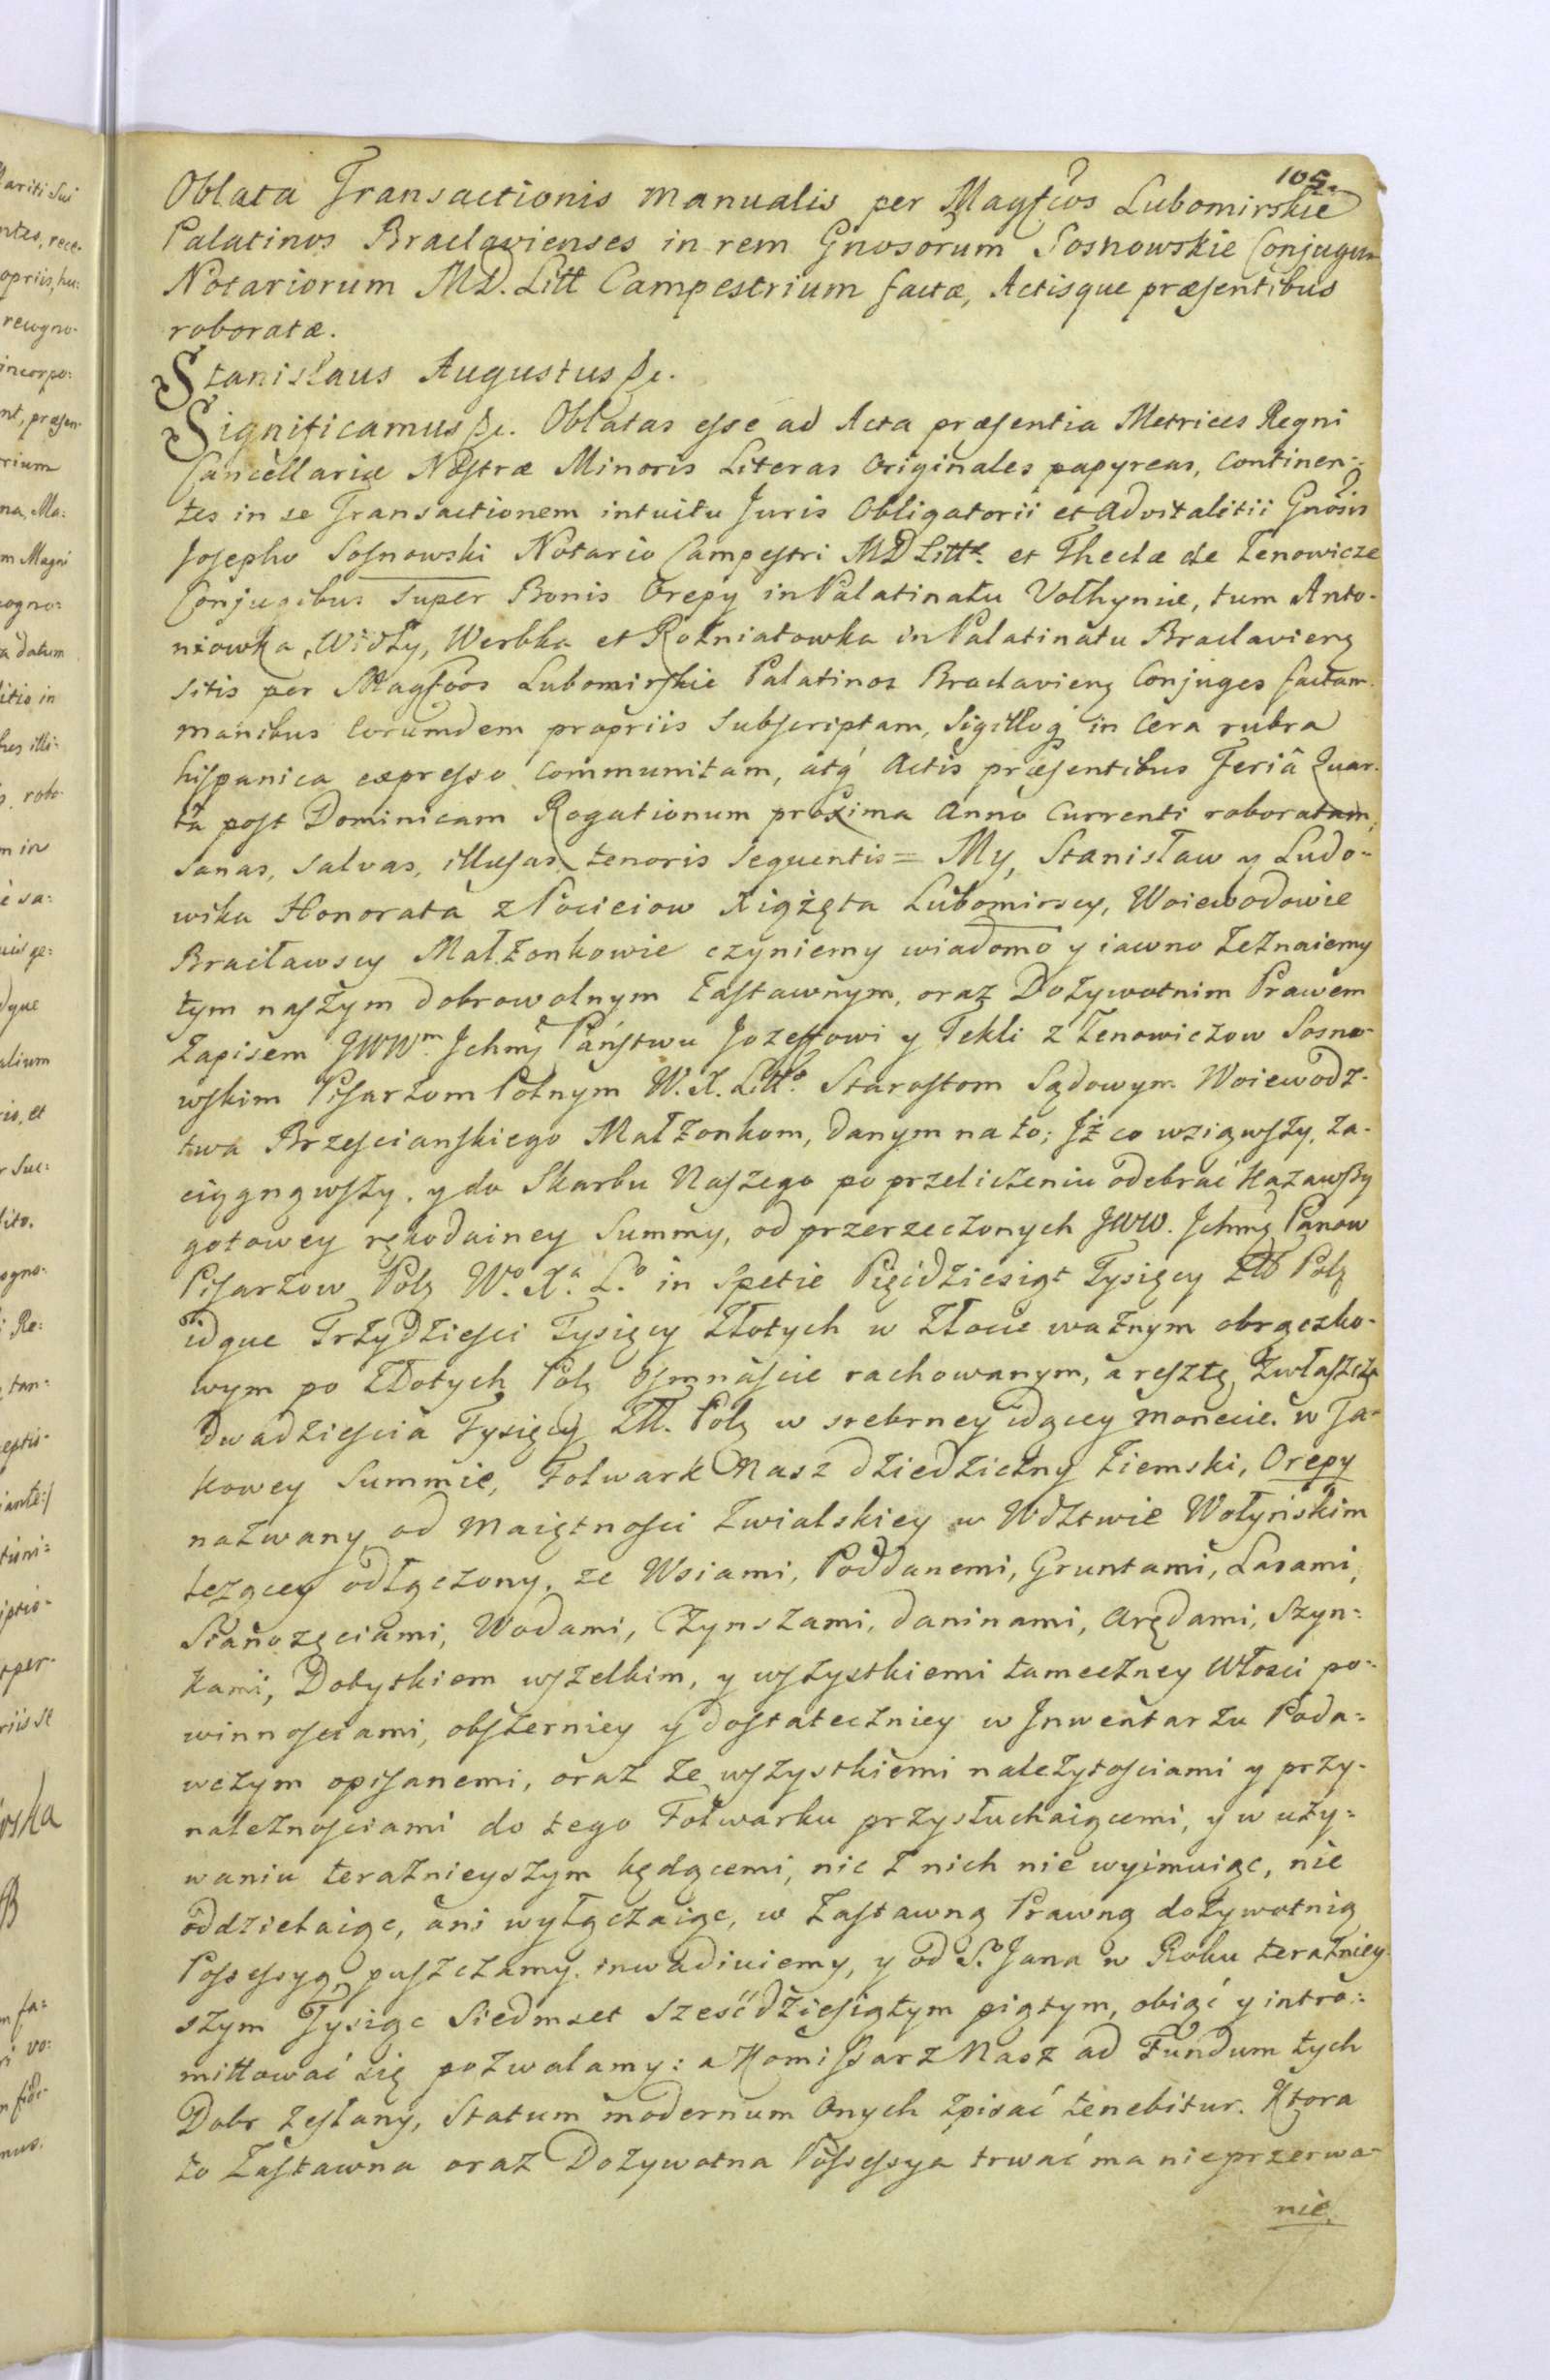 105.
Oblata Transactionis manualis per Magfcos Lubomirskie
Palatinos Braclavienses in rem Gnosorum Sosnowskie Conjugum
Notariorum M.D. Litt Campestrium factæ, Actisque præsentibus
roboratæ.
Stanislaus Augustus &c.
Significamus &c. Oblatas esse ad Acta præsentia Metrices Regni
Cancellariæ Nostræ Minoris Literas Originales papyreas, Continen=
tes in se Transactionem intuitu Juris Obligatorii et Advitalitii Gnosis
Josepho Sosnowski Notario Campestri MD Litt. et Theclæ de Zenowicze
Conjugibus super Bonis Orepy in Palatinatu Volhyniæ, tum Anto-
niowka, Widły, Werbka et Rożniatowka in Palatinatu Braclavieng
sitis per Magfcos Lubomirskie Palatinos Braclavieng Conjuges factam
manibus Eorumdem propriis subscriptam, Sigilloq in Cera rubra
hispanica expresso communitam, atq Actis præsentibus Feriâ Quar-
ta post Dominicam Rogationum proxima Anno Currenti roboratam,
sanas, salvas, illæsas tenoris sequentis = My, Stanisław y Ludo-
wika Honorata z Pocieiow Xiążęta Lubomirscy, Woiewodowie
Bracławscy Małżonkowie czyniemy wiadomo y iawno zeznaiemy
tym naszym dobrowolnym Zastawnym, oraz Dożywotnim Prawem
Zapisem JWWm. Jchmć Państwu Jozeffowi y Tekli z Zenowiczow Sosno-
wskim Pisarzom Polnym W. X. Litto. Starostom Sądowym Woiewodz-
twa Brzescianskiego Małżonkom, danym na to; Jż co wziąwszy, za-
ciągnąwszy, y do Skarbu Naszego po przeliczeniu odebrać kazawszy
gotowey rękodainey Summy, od przerzeczonych JWW. Jchmć Panow
Pisarzow Polg Wo. Xa. Lo. in Spetie Pięćdziesiąt Tysięcy Złł Polg
idque Trzydziesci Tysięcy Złotych w Złocie ważnym obrączko-
wym po Złotych Polg Osmnascie rachowanym, a resztę, zwłaszcza
Dwadziescia Tysięcy Złł. Polg w srebrney idącey monecie. w Ja-
kowey Summie, Folwark Nasz dziedziczny ziemski, Orepy
nazwany, od Maiętnosci Zwialskiey w Wdztwie Wołyńskim
leżącey odłączony, ze Wsiami, Poddanemi, Gruntami, Lasami,
Sianożęciami, Wodami, Czynszami, daninami, Arędami, Szyn=
kami, Dobytkiem wszelkim, y wszystkiemi tameczney Włosci po=
winnosciami, obszerniey y dostateczniey w Jnwentarzu Poda=
wczym opisanemi, oraz ze wszystkiemi należytosciami y przy-
należnosciami do tego Folwarku przysłuchaiącemi, y w uży=
waniu teraznieyszym będącemi, nic z nich nie wyimuiąc, nie
oddzielaiąc, ani wyłączaiąc, w Zastawną Prawną dożywotnią
Possessyą puszczamy, inwadiuiemy, y od So. Jana w Roku terazniey-
szym Tysiąc Siedmset Szesćdziesiątym piątym, obiąć y intro=
mittować się pozwalamy: a Komissarz Nasz ad Fundum tych
Dobr zesłany, Statum modernum Onych spisać tenebitur. Ktora
to Zastawna oraz Dożywotna Possessya trwać ma nieprzerwa-
nie